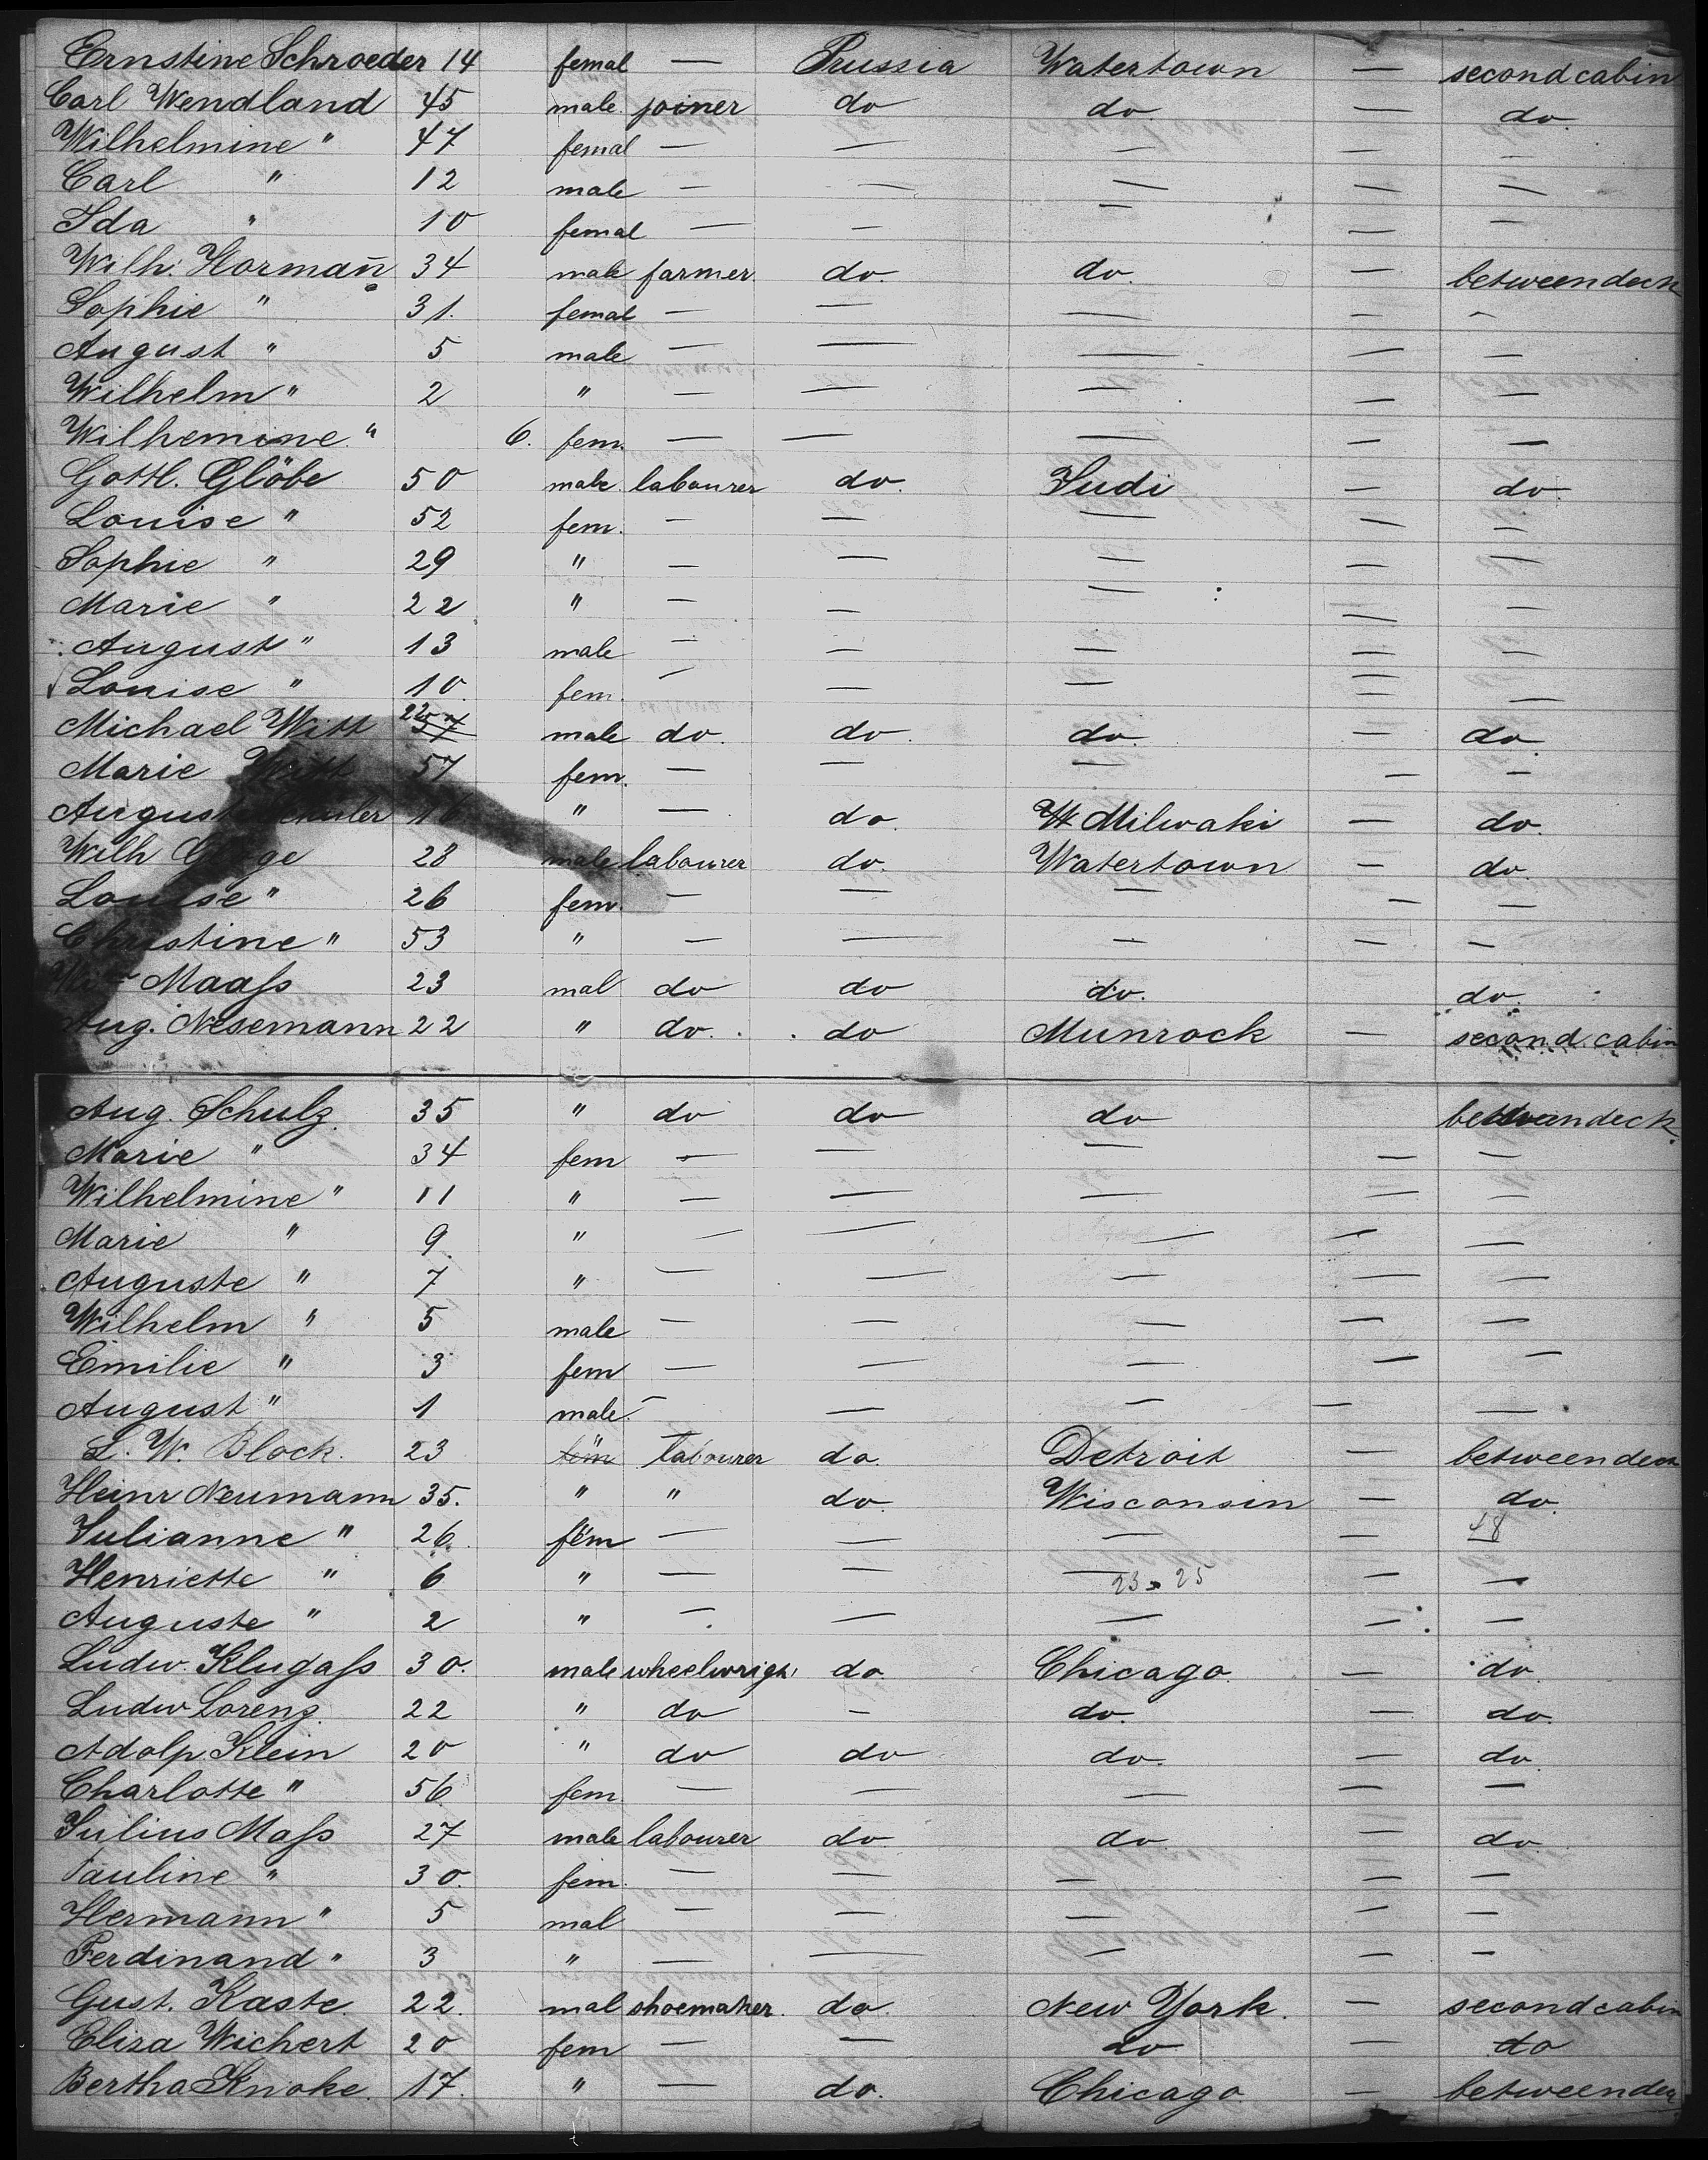 Ernstine Schroeder 14 femal — Prussia Watertown — second cabin
Carl Wendland 45 male joiner do do. — do.
Wilhelmine " 47 femal — — — — —
Carl " 12 male — — — — —
Ida " 10 femal — — — — —
Wilh. Hormañ 34 male farmer. do. do. — betweendeck
Sophie " 31. femal — — — — —
August " 5 male — — — — —
Wilhelm " 2 " — — — — —
Wilhemine " 6. fem. — — — — —
Gottl. Glöbe 50 male labourer do. Judi — do.
Louise " 52 fem. — — — — —
Sophie " 29 " — — — — —
Marie " 22 " — — — — —
August " 13 male — — — — —
Louise " 10. fem. — — — — —
Michael Witt 22 57 male do. do. do. — do.
Marie Witt 57 fem. — — — — —
August 16 " — do. Milwaki — do.
Wilh 28 male labourer do. Watertown — do.
Louise " 26 fem. — — — — —
Christine " 53 " — — — — —
Maaſs 23 mal do do do. do.
Aug. Nesemann 22 " do. do Munrock — second cabin
Aug. Schulz. 35 " do do do betweendeck.
Marie " 34 fem — — — — —
Wilhelmine " 11 " — — — — —
Marie " 9. " — — — — —
Auguste " 7 " — — — — —
Wilhelm " 5 male — — — — —
Emilie " 3 fem — — — — —
August " 1 male. — — — — —
L. W. Block. 23 fem " labourer do. Detroit — betweendeck
Heinr Neumann 35. " " do. Wisconsin — do.
Julianne " 26. fem — — — — 48
Henriette " 6 " — — — 23 25 — —
Auguste " 2 " — — — — —
Ludw. Klugaſs 30. male wheelwrigh do. Chicago. — do.
Ludw Lorenz. 22 " do — do. — do.
Adolp. Klein 20 " do do do. — do.
Charlotte " 56 fem. — — — — —
Julius Maſs 27 male labourer do. do — do.
Pauline " 30. fem. — — — — —
Hermann " 5 mal — — — — —
Ferdinand " 3 " — — — — —
Gust. Kaste. 22. mal shoemaker. do. New York. — second cabin
Elisa Wichert 20 fem — — do — do
Bertha Knoke. 17. " — do. Chicago. — betweendeck